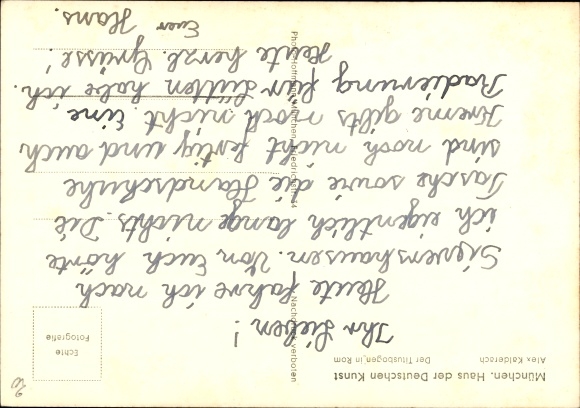 München. Haus der Deutschen Kunst
Alex Kalderach Der Titusbogen, in Rom
Echte
Fotografie
Ihr Lieben!
Heute fahre ich nach
Sievershausen. Von Euch hörte
ich eigentlich lange nichts. Die
Tasche sowie die Handschuhe
sind noch nicht fertig und auch
Kreme gibts noch nicht. Eine
Radierung für Lütten habe ich.
Heute herzl. Grüsse!
Euer
Hans.
Photo-Hoffmann, München, Friedrichstr. 34
Nachdruck verboten
20